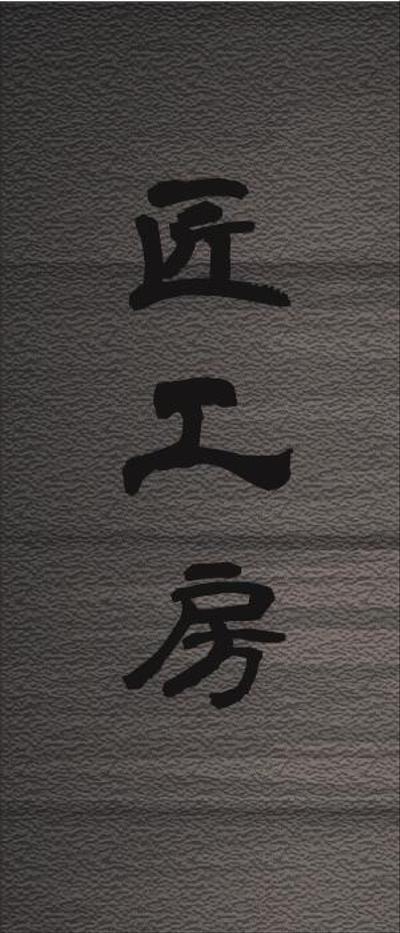 匠工房